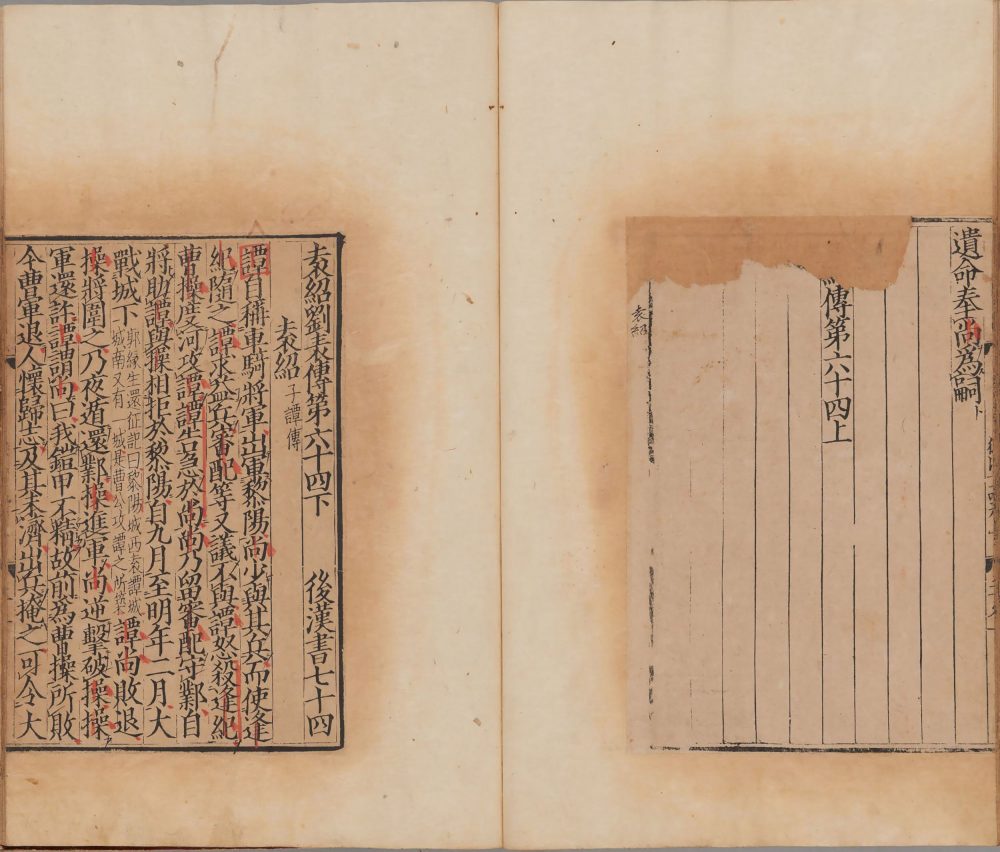 遺命奉尚爲嗣
傳第六十四上
袁紹
袁紹劉表傳第六十四下　後漢書七十四
袁紹子譚傳
譚自稱車騎將軍出軍黎陽尚少與其兵而使逢
紀隨之譚求益兵審配等又議不與譚怒殺逢紀
曹操度河攻譚譚告急於尚尚乃留審配守鄴自
將助譚與操相拒於黎陽自九月至明年二月大
戰城下郭緣生述征記曰黎陽城西袁譚城城南又有一城是曹公攻譚之所築譚尚敗退
操將圍之乃夜遁還鄴操進軍尚逆擊破操操
軍還許譚謂尚曰我鎧甲不精故前爲曹操所敗
今曹軍退人懷歸志及其未濟出兵掩之可令大